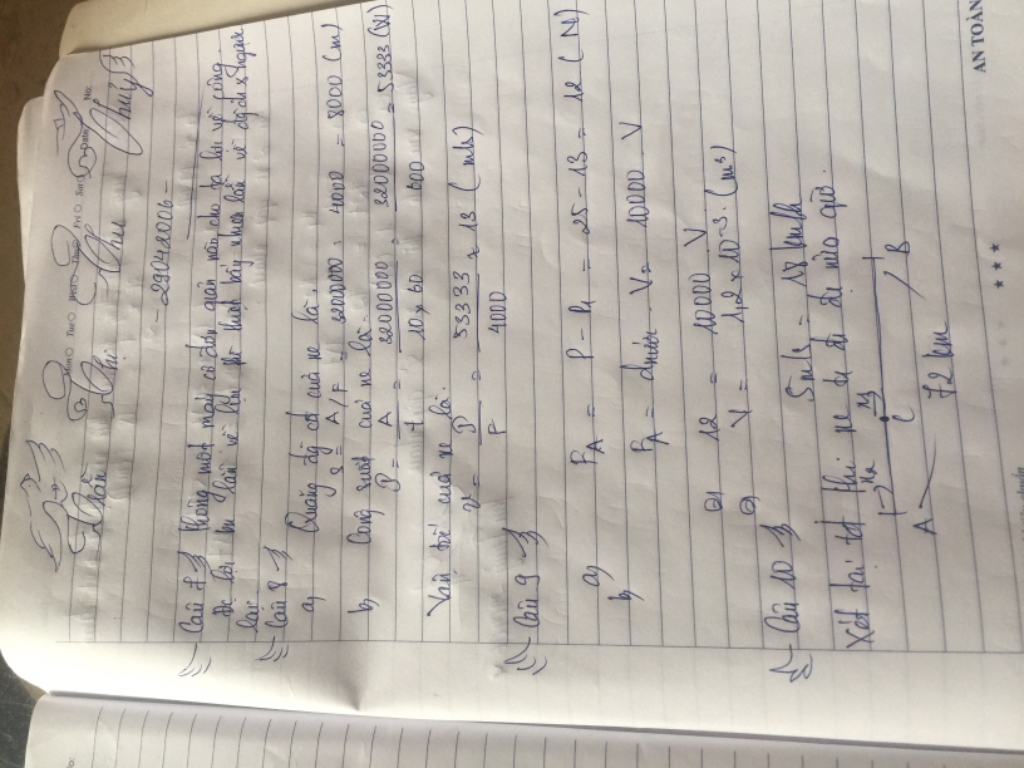 Thu
Thu
-29042006-
Câu 7 Không một máy cơ đơn giản nào cho ta lợi về công
được lợi bao nhiêu lần về lực thì thiệt bấy nhiêu lần về đường đi và ngược
lại.
Câu 8
a, Quãng đường đi của xe là:
s = A/F = 32000000 : 4000 = 8000 (m)
b, Công suất của xe là:
P = A/t = 32000000/10 x 60 = 32000000/600 = 53333 (W)
Vận tốc của xe là:
v = P/F = 53333/4000 ≈ 13 (m/s)
Câu 9
a, FA = P - P1 = 25 - 13 = 12 (N)
b, FA = dnước . V = 10000 V
12 = 10000 V
V = 12 x 10^-3 (m3)
Câu 10 5m/s = 18 km/h
Xét tại t khi xe đi
A C B
72 km
AN TOÀN
★ ★ ★